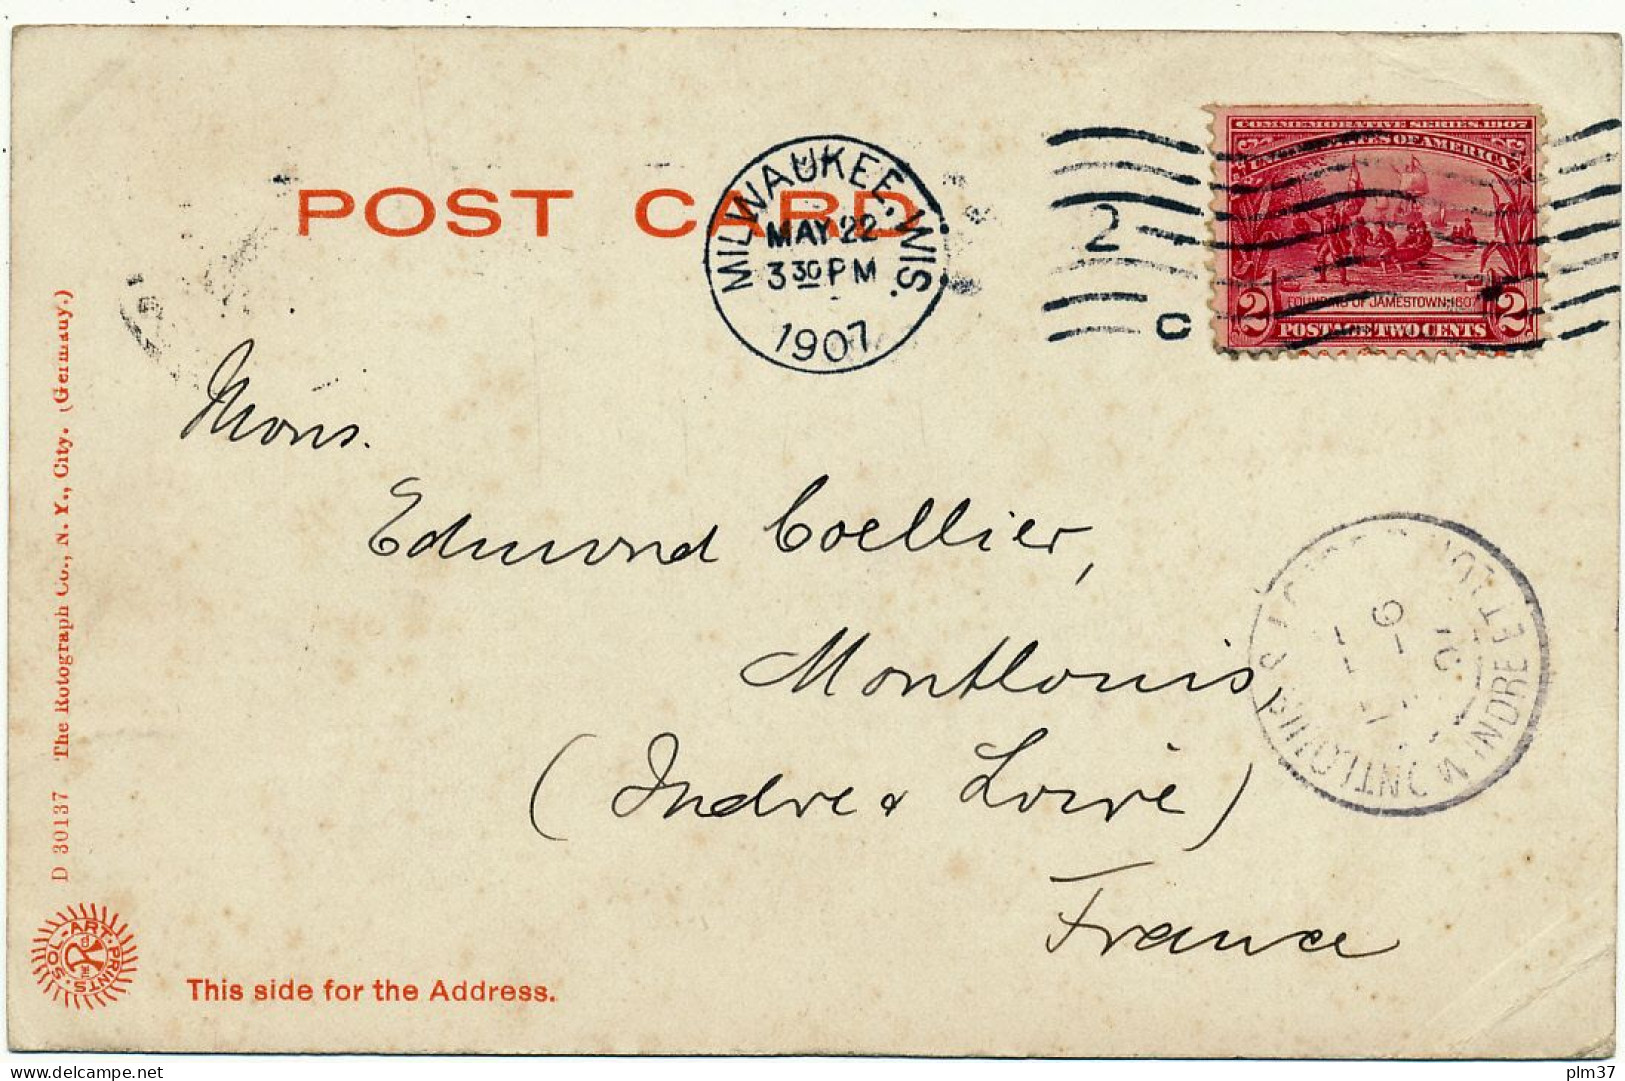 POST CARD
MILWAUKEE, WIS.
MAY 22
3 30 PM
1907
2
C
COMMEMORATIVE SERIES, 1907
OF AMERICA
FOUNDING OF JAMESTOWN, 1607
2 POSTAGE TWO CENTS 2
Mons.
Edmond Coellier,
Montlouis,
(Indre & Loire)
France
INDRE ET LOIRE
D 30137 The Rotograph Co., N. Y., City. (Germany.)
SOL-ART-PRINTS
This side for the Address.
plm37